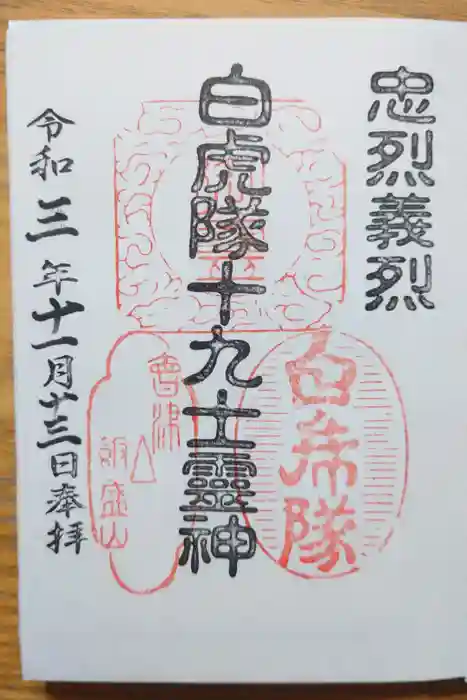 忠烈義烈
白虎隊十九士霊神
白虎隊
會津
飯盛山
令和三年十一月十三日奉拝